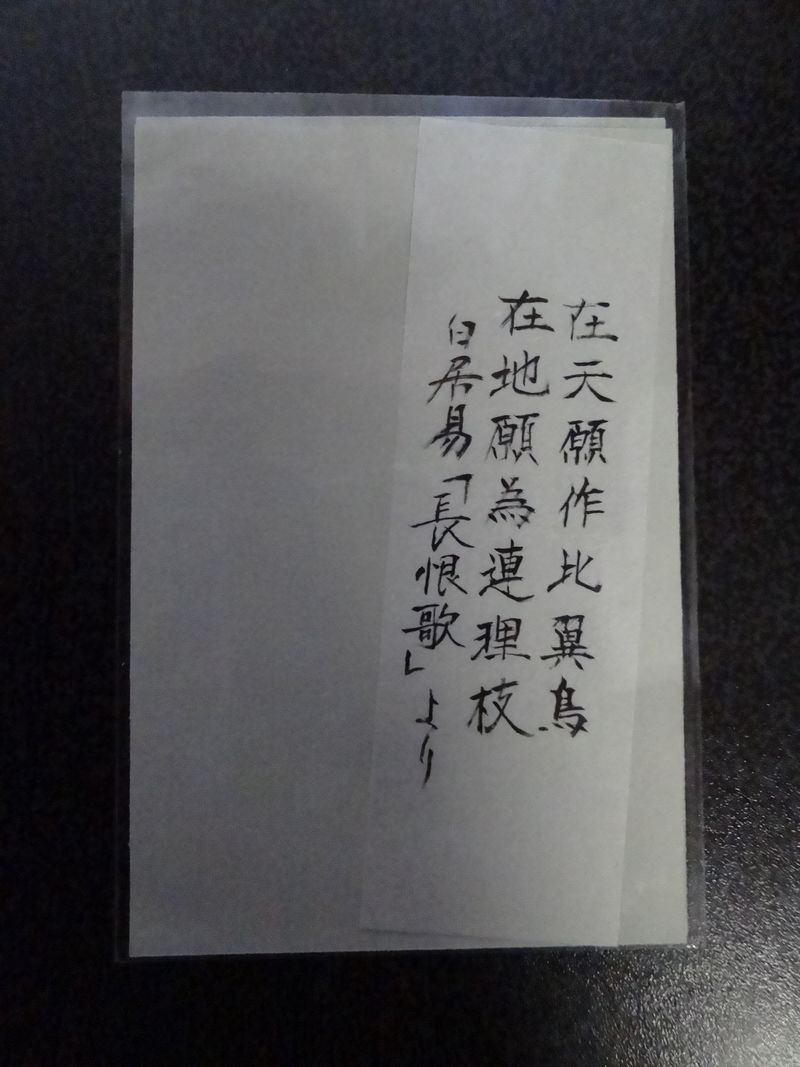 在天願作比翼鳥
在地願為連理枝
白居易「長恨歌」より